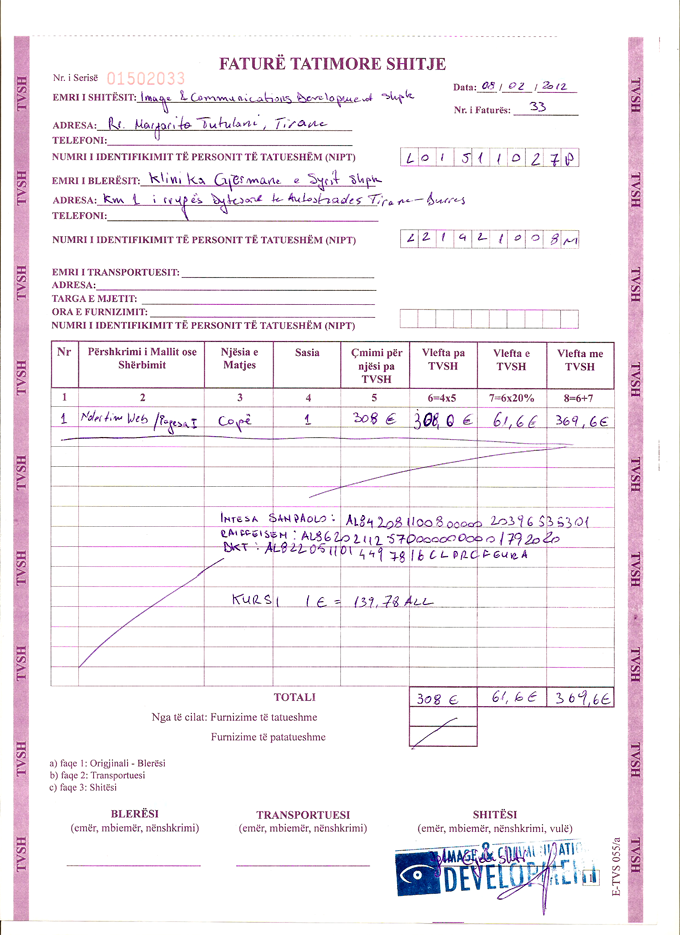 FATURË TATIMORE SHITJE
Nr. i Serisë 01502033
Data: 08 / 02 / 2012
EMRI I SHITËSIT: Image & Communications Development Shpk
Nr. i Faturës: 33
ADRESA: Rr. Margarita Tutulani, Tirane
TELEFONI:
NUMRI I IDENTIFIKIMIT TË PERSONIT TË TATUESHËM (NIPT) L01511027P
EMRI I BLERËSIT: Klinika Gjermane e Syrit Shpk
ADRESA: Km 1 i rrugës dytesore te Autostrades Tirane-Durres
TELEFONI:
NUMRI I IDENTIFIKIMIT TË PERSONIT TË TATUESHËM (NIPT) L21421008M
EMRI I TRANSPORTUESIT:
ADRESA:
TARGA E MJETIT:
ORA E FURNIZIMIT:
NUMRI I IDENTIFIKIMIT TË PERSONIT TË TATUESHËM (NIPT)
Nr Përshkrimi i Mallit ose Shërbimit Njësia e Matjes Sasia Çmimi për njësi pa TVSH Vlefta pa TVSH Vlefta e TVSH Vlefta me TVSH
1 2 3 4 5 6=4x5 7=6x20% 8=6+7
1 Ndertim Web /Pagesa I Copë 1 308 € 308,0 € 61,6€ 369,6€
INTESA SANPAOLO: AL84208110080000020396535301
RAIFFEISEN: AL862021125700000000001792020
BKT: AL8220511014497816CLPRCFEURA
KURSI 1€ = 139,78 ALL
TOTALI 308 € 61,6€ 369,6€
Nga të cilat: Furnizime të tatueshme
Furnizime të patatueshme
a) faqe 1: Origjinali - Blerësi
b) faqe 2: Transportuesi
c) faqe 3: Shitësi
BLERËSI TRANSPORTUESI SHITËSI
(emër, mbiemër, nënshkrimi) (emër, mbiemër, nënshkrimi) (emër, mbiemër, nënshkrimi, vulë)
IMAGE & COMMUNICATION
DEVELOPMENT
E-TVS 055/a
TVSH TVSH TVSH TVSH TVSH TVSH TVSH TVSH TVSH
TVSH TVSH TVSH TVSH TVSH TVSH TVSH TVSH TVSH